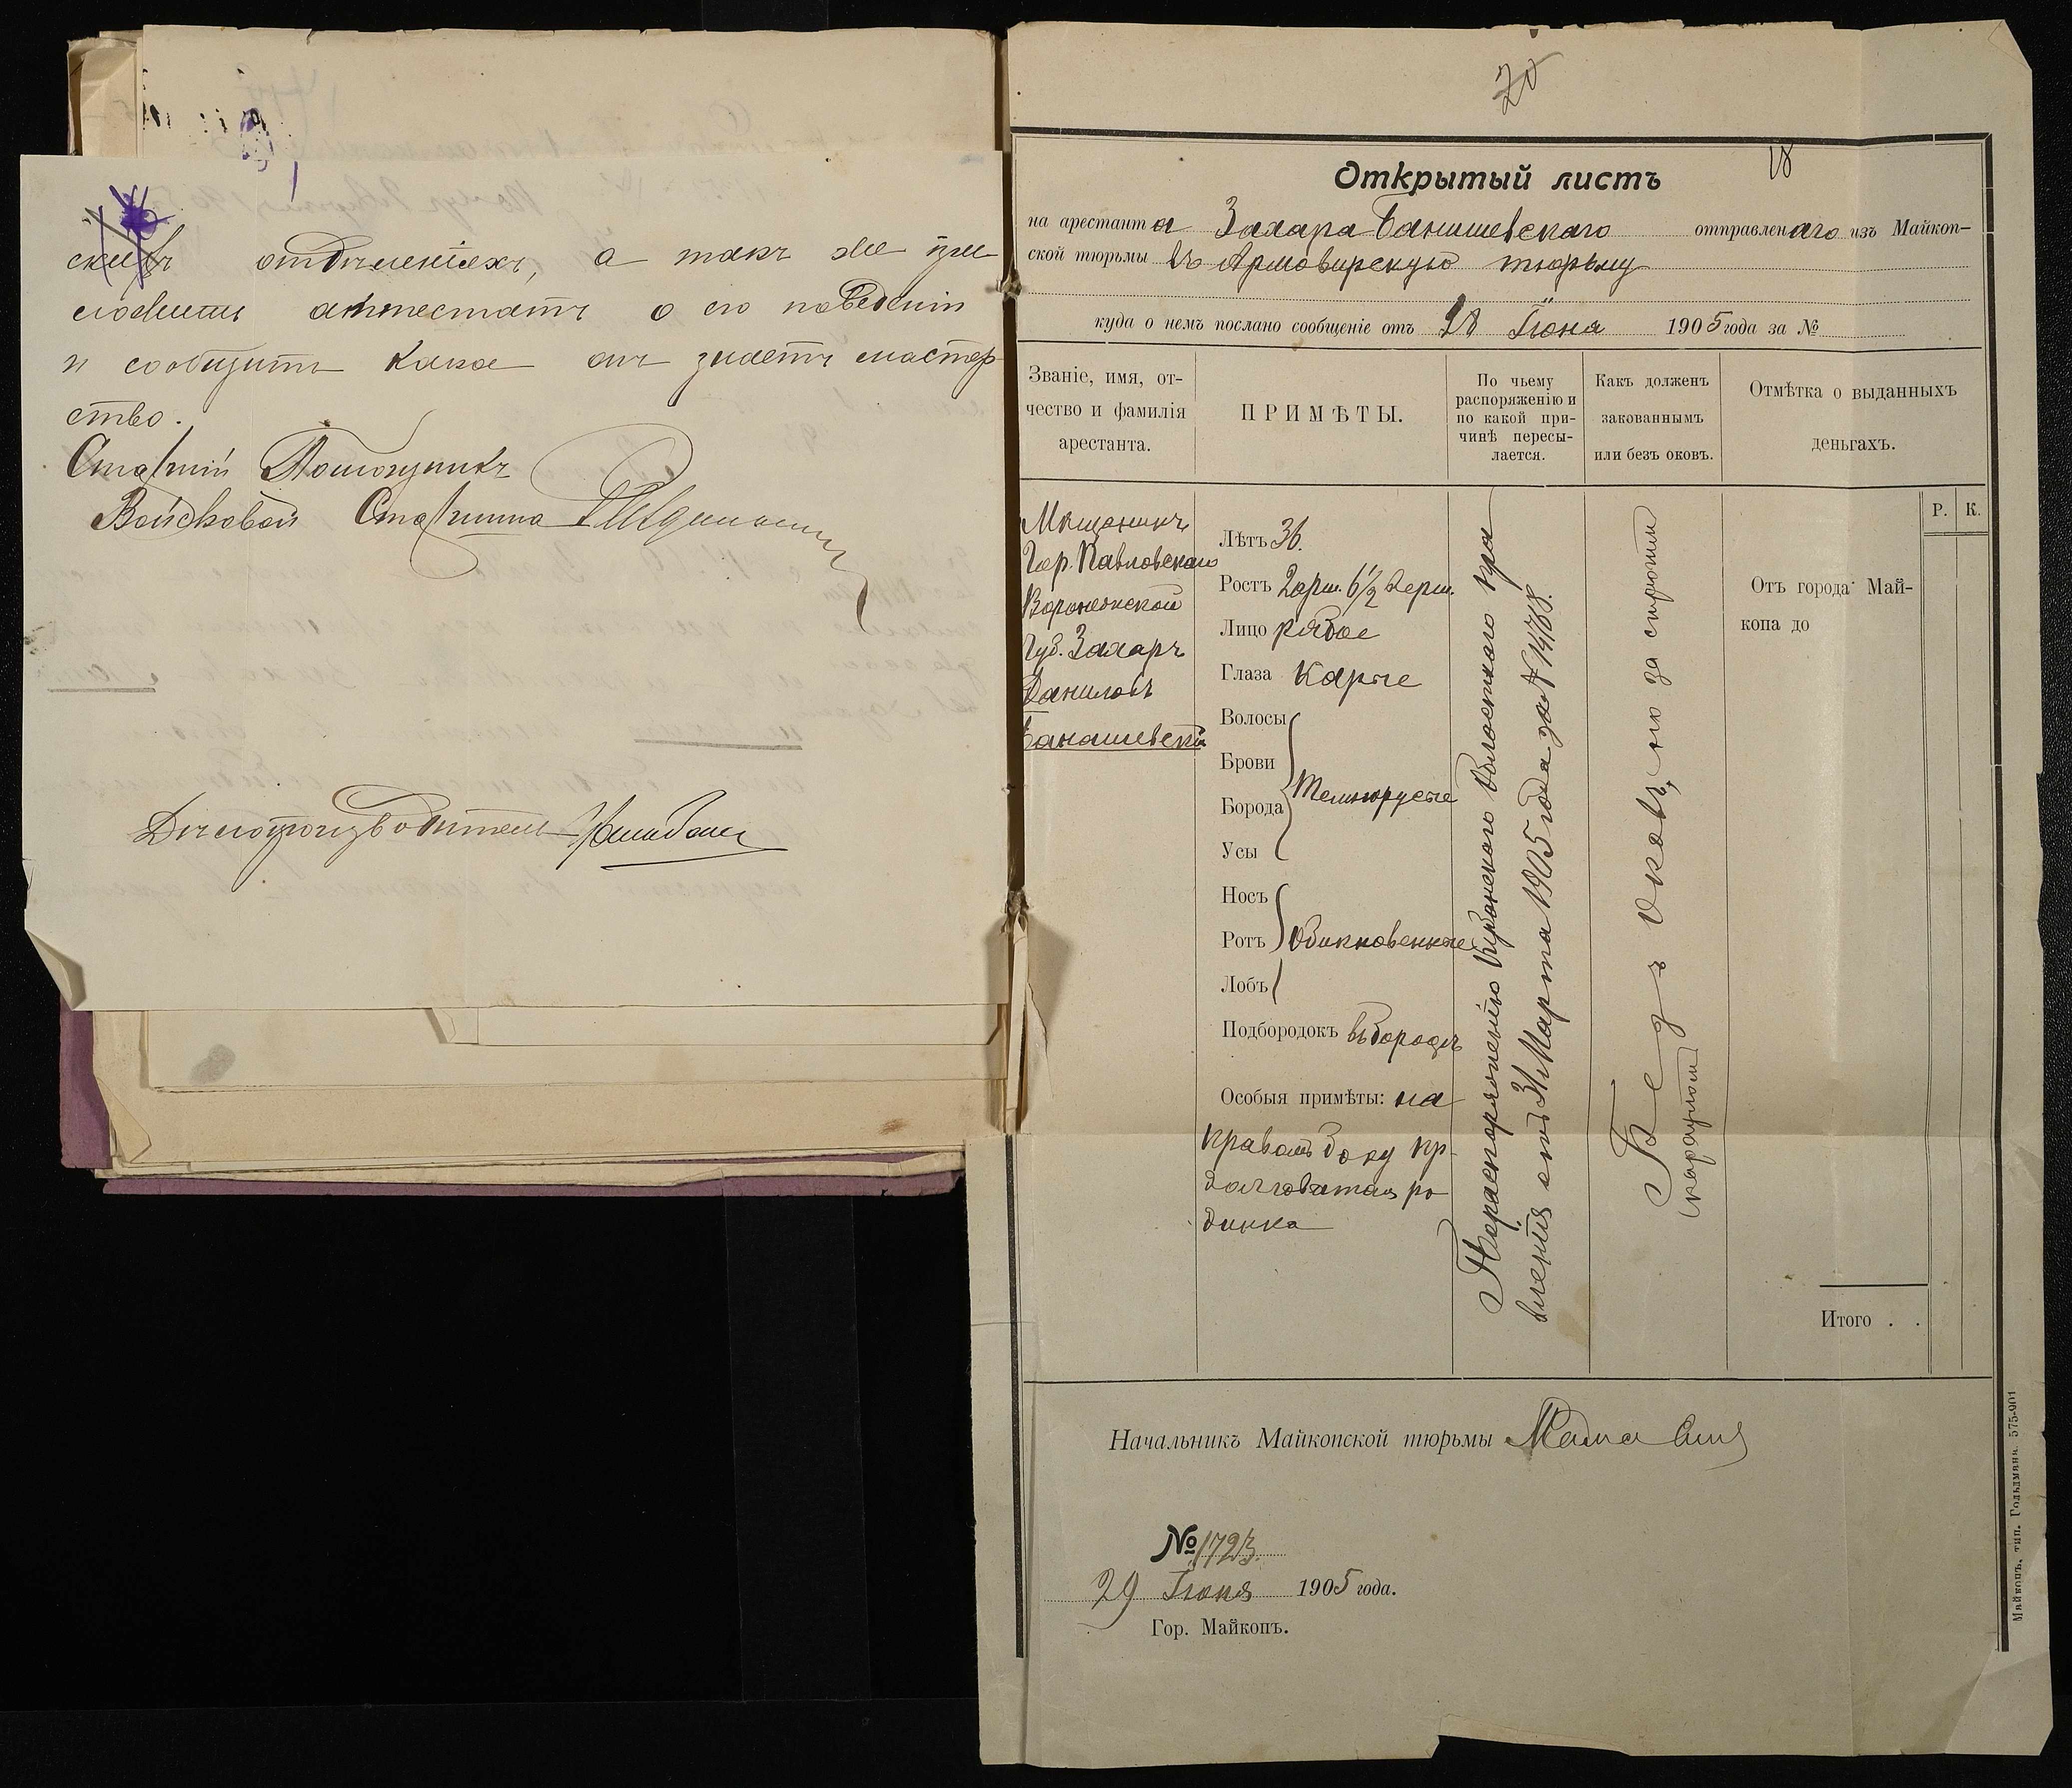 скихъ отдѣленіяхъ, а такъ же при
словить аттестатъ о его поведеніи
и сообщить какое онъ знаетъ мастер
ство.
Старшій Помощникъ
Войсковой Старшина
Дѣлопроизводитель
20
18
Открытый листъ
на арестанта Захара Банашевскаго отправленаго изъ Майкоп-
ской тюрьмы въ Армавирскую тюрьму
куда о немъ послано сообщеніе отъ 28 Іюня 1905 года за №
Званіе, имя, от-
чество и фамилія
арестанта.
ПРИМѢТЫ.
По чьему
распоряженію и
по какой при-
чинѣ пересы-
лается.
Какъ долженъ
закованнымъ
или безъ оковъ.
Отмѣтка о выданныхъ
деньгахъ.
Р. К.
Мѣщанинъ
Гор. Павловскаго
Воронежской
Губ. Захаръ
Даниловъ
Банашевскій
Лѣтъ 36.
Ростъ 2 арш. 6½ верш.
Лицо рябое
Глаза каріе
Волосы
Брови
Борода
Усы
Темнорусые
Носъ
Ротъ
Лобъ
Обикновенные
Подбородокъ въ бородѣ
Особыя примѣты: на
правомъ боку пр-
долговатая ро
динка
По распоряженію Кубанскаго Областного пра
вленія отъ 31 Марта 1905 года за № 14768.
Безъ оковъ, но за строгим
караулом
Отъ города Май-
копа до
Итого . .
Начальникъ Майкопской тюрьмы
№ 1723.
29 Іюня 1905 года.
Гор. Майкопъ.
Майкопъ, тип. Гольдмана 575-901